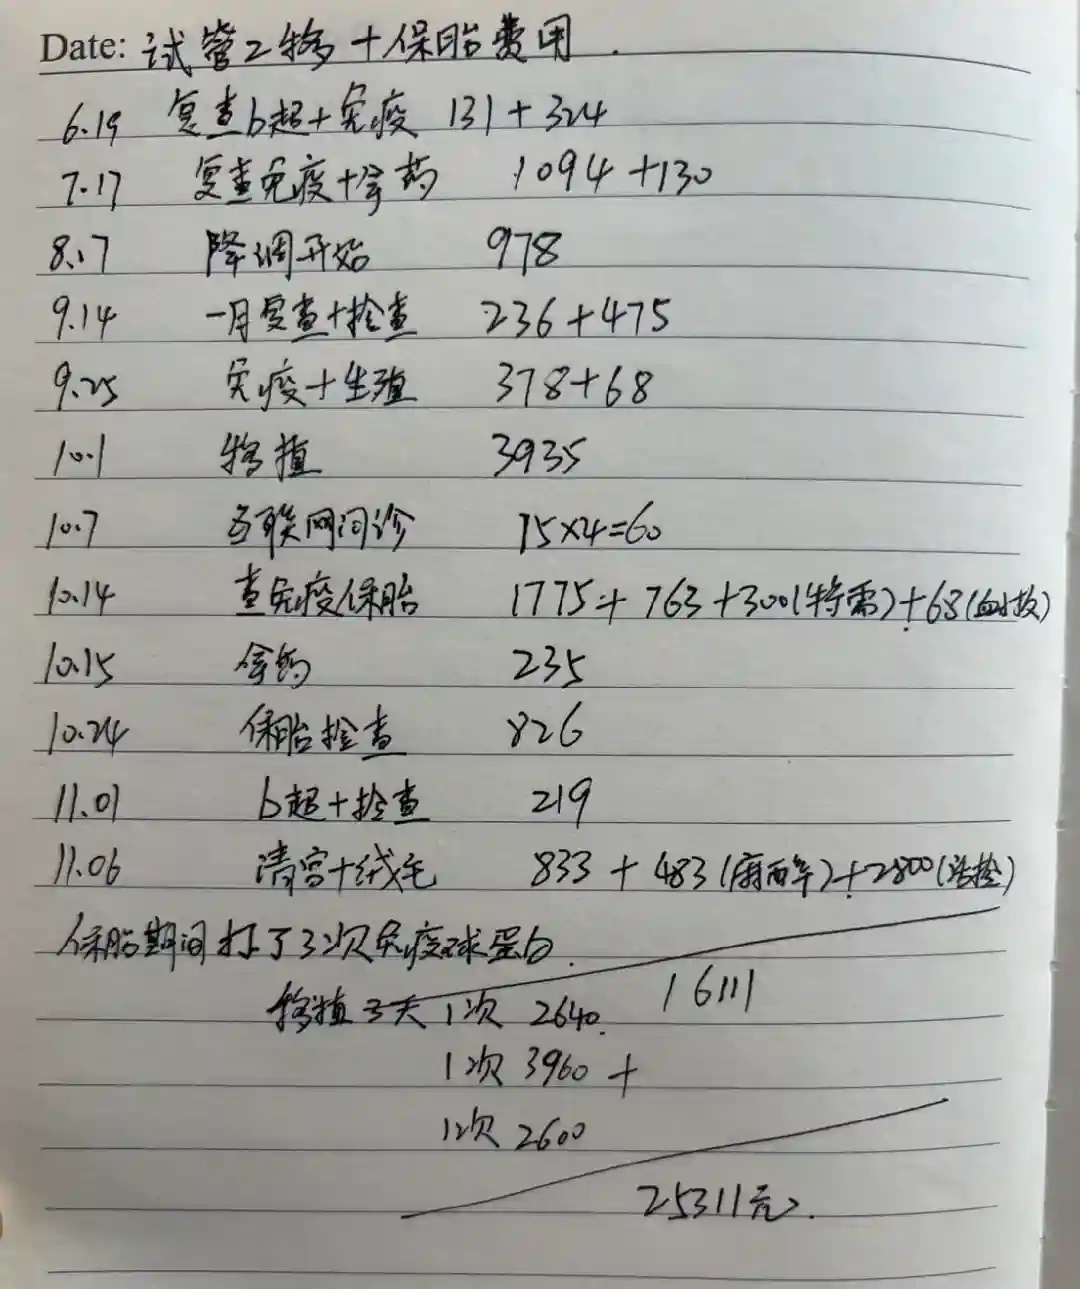 Date: 试管2移+保胎费用.
6.19 复查b超+免疫 131+324
7.17 复查免疫+拿药 1094+130
8.17 降调开始 978
9.14 一月复查+检查 236+475
9.25 免疫+生殖 378+68
10.1 移植 3935
10.7 互联网问诊 15×4=60
10.14 查免疫保胎 1775+763+300(特需)+68(血小板)
10.15 拿药 235
10.24 保胎检查 826
11.01 b超+检查 219
11.06 清宫+绒毛 833+483(麻而卒)+2800(送检)
保胎期间打了3次免疫球蛋白.
16111
移植3天1次 2640.
1次 3960+
1次 2600
25311元.